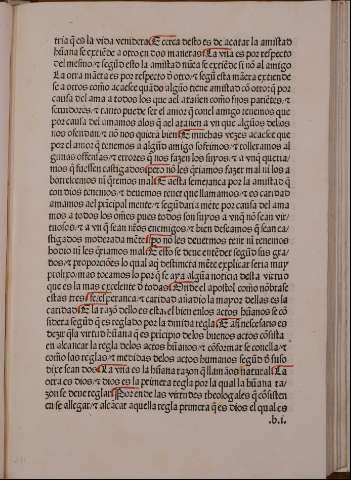 tria q̃ es la vida venidera. E cerca desto es de acatar la amistad
hũana se extiẽde a otro en dos maneras. La vña es por respecto
del mesmo. ⁊ segũ esto la amistad nũca se extiẽde si nõ al amigo
La otra mãera es por respecto d̓ otro. ⁊ segũ esta mãera extiende
se a otros como acaesçe quãdo algũo tiene amistad cõ otro: q̃ por
causa del ama a todos los que al atañen como fijos pariẽtes. ⁊
seruidores. ⁊ tanto puede ser el amor q̃ conel amigo tenemos que
por causa del amamos alos q̃ al atañen a vn que algũos dellos
nos ofendan. ⁊ nõ nos quierã bien. E muchas vezes acaesçe que
por el amor q̃ tenemos a algũd amigo sofrimos ⁊ tolleramos al
gunas offensas. ⁊ errores q̃ nos fazen los suyos. ⁊ a vnq̃ querria
mos q̃ fuessen castigados pero nõ les q̃rriamos fazer mal ni los a
borresçemos ni q̃remos mal. E a esta semejança por la amistad q̃
con dios tenemos. ⁊ deuemos tener que llamamos. ⁊ es caridad
amamos a el prĩcipal mente. ⁊ segũdaria mẽte por causa del ama
mos a todos los oms̃ pues todos son suyos a vnq̃ nõ sean vir
tuosos. ⁊ a vn q̃ sean nr̃os enemigos. ⁊ bien deseamos q̃ sean ca
stigados moderada mẽte. po nõ les deuemos tener ni tenemos
odio ni les q̃rriamos mal. Esto se deue entẽder segũd sus gra
dos ⁊ proporciões lo qual aq̃ destincta mẽte explicar seria muy
prolixo mas tocamos lo por q̃ se aya algũa noticia desta virtud
que es la mas excelente d̓ todas. Onde el apostol como nõbrase
estas tres fe. esperança. ⁊ caridad añadio la mayor dellas es la
caridad. E la razõ dello es esta. el bien enlos actos hũanos se cõ
sidera segũd q̃ es reglado por la diuida regla. E asi nesçesario es
dezir q̃ la virtud hũana q̃ es pricipio delos buenos actos cõsista
en alcançar la regla delos actos hũanos. ⁊ cõformar se conella. ⁊
como las reglas. ⁊ medidas delos actos humanos segũd d̓ suso
dixe sean dos. La vña es la hũana razon q̃ llamãos natural. La
otra es dios. ⁊ dios es la primera regla por la qual la hũana ra
zon se deue reglar. Por ende las virtudes theologales q̃ cõsisten
en se allegar. ⁊ alcãçar aquella regla primera q̃ es dios el qual es
.b.i.